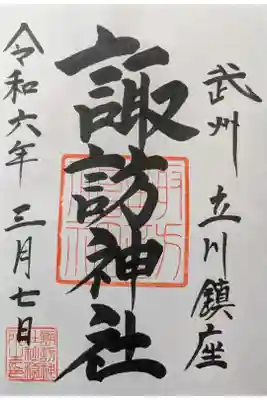 武州 立川鎮座
諏訪神社
令和六年 三月七日